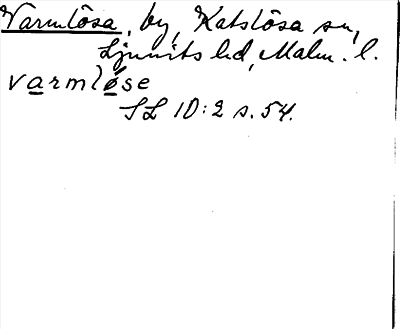 Varmlösa, by, Katslösa sn,
Ljunits hd, Malm. l.
varmløse
SL 10:2 s. 54.